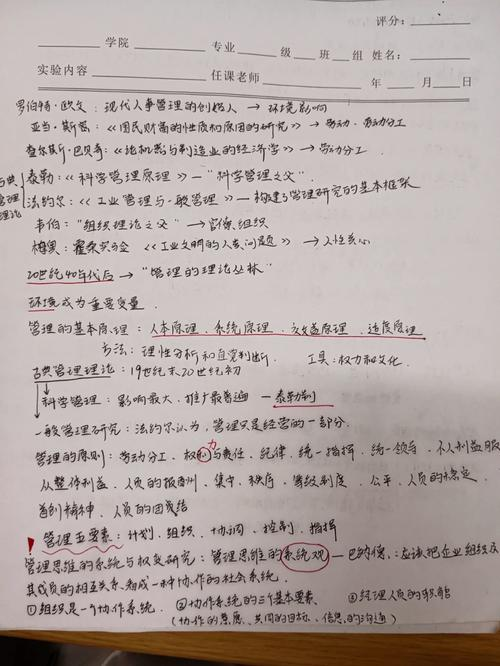 评分：
学院 专业 级 班 组 姓名：
实验内容 任课老师 年 月 日
罗伯特·欧文：现代人事管理的创始人 → 环境影响
亚当·斯密：《国民财富的性质和原因的研究》→ 劳动、劳动分工
查尔斯·巴贝奇：《论机器与制造业的经济学》→ 劳动分工
古典管理理论
泰勒：《科学管理原理》—“科学管理之父”
法约尔：《工业管理与一般管理》→ 构建了管理研究的基本框架
韦伯：“组织理论之父” → 官僚组织
梅奥：霍桑实验 《工业文明的人类问题》 → 人性关心
20世纪40年代后 → “管理的理论丛林”
环境成为重要变量
管理的基本原理：人本原理、系统原理、效益原理、适度原理
方法：理性分析和直觉判断． 工具：权力和文化．
古典管理理论：19世纪末20世纪初
科学管理：影响最大、推广最普遍 — 泰勒制
一般管理研究：法约尔认为，管理只是经营的一部分．
管理的原则：劳动分工、权力与责任、纪律、统一指挥、统一领导、个人利益服
从整体利益、人员的报酬、集中、秩序、等级制度、公平、人员的稳定、
首创精神、人员的团结
！管理五要素：计划、组织、协调、控制、指挥
管理思维的系统与权变研究：管理思维的系统观 — 巴纳德：应该把企业组织及
其成员的相互关系看成一种协作的社会系统．
①组织是一个协作系统． ②协作系统的三个基本要素 ③经理人员的职能
（协作的意愿、共同的目标、信息的沟通）